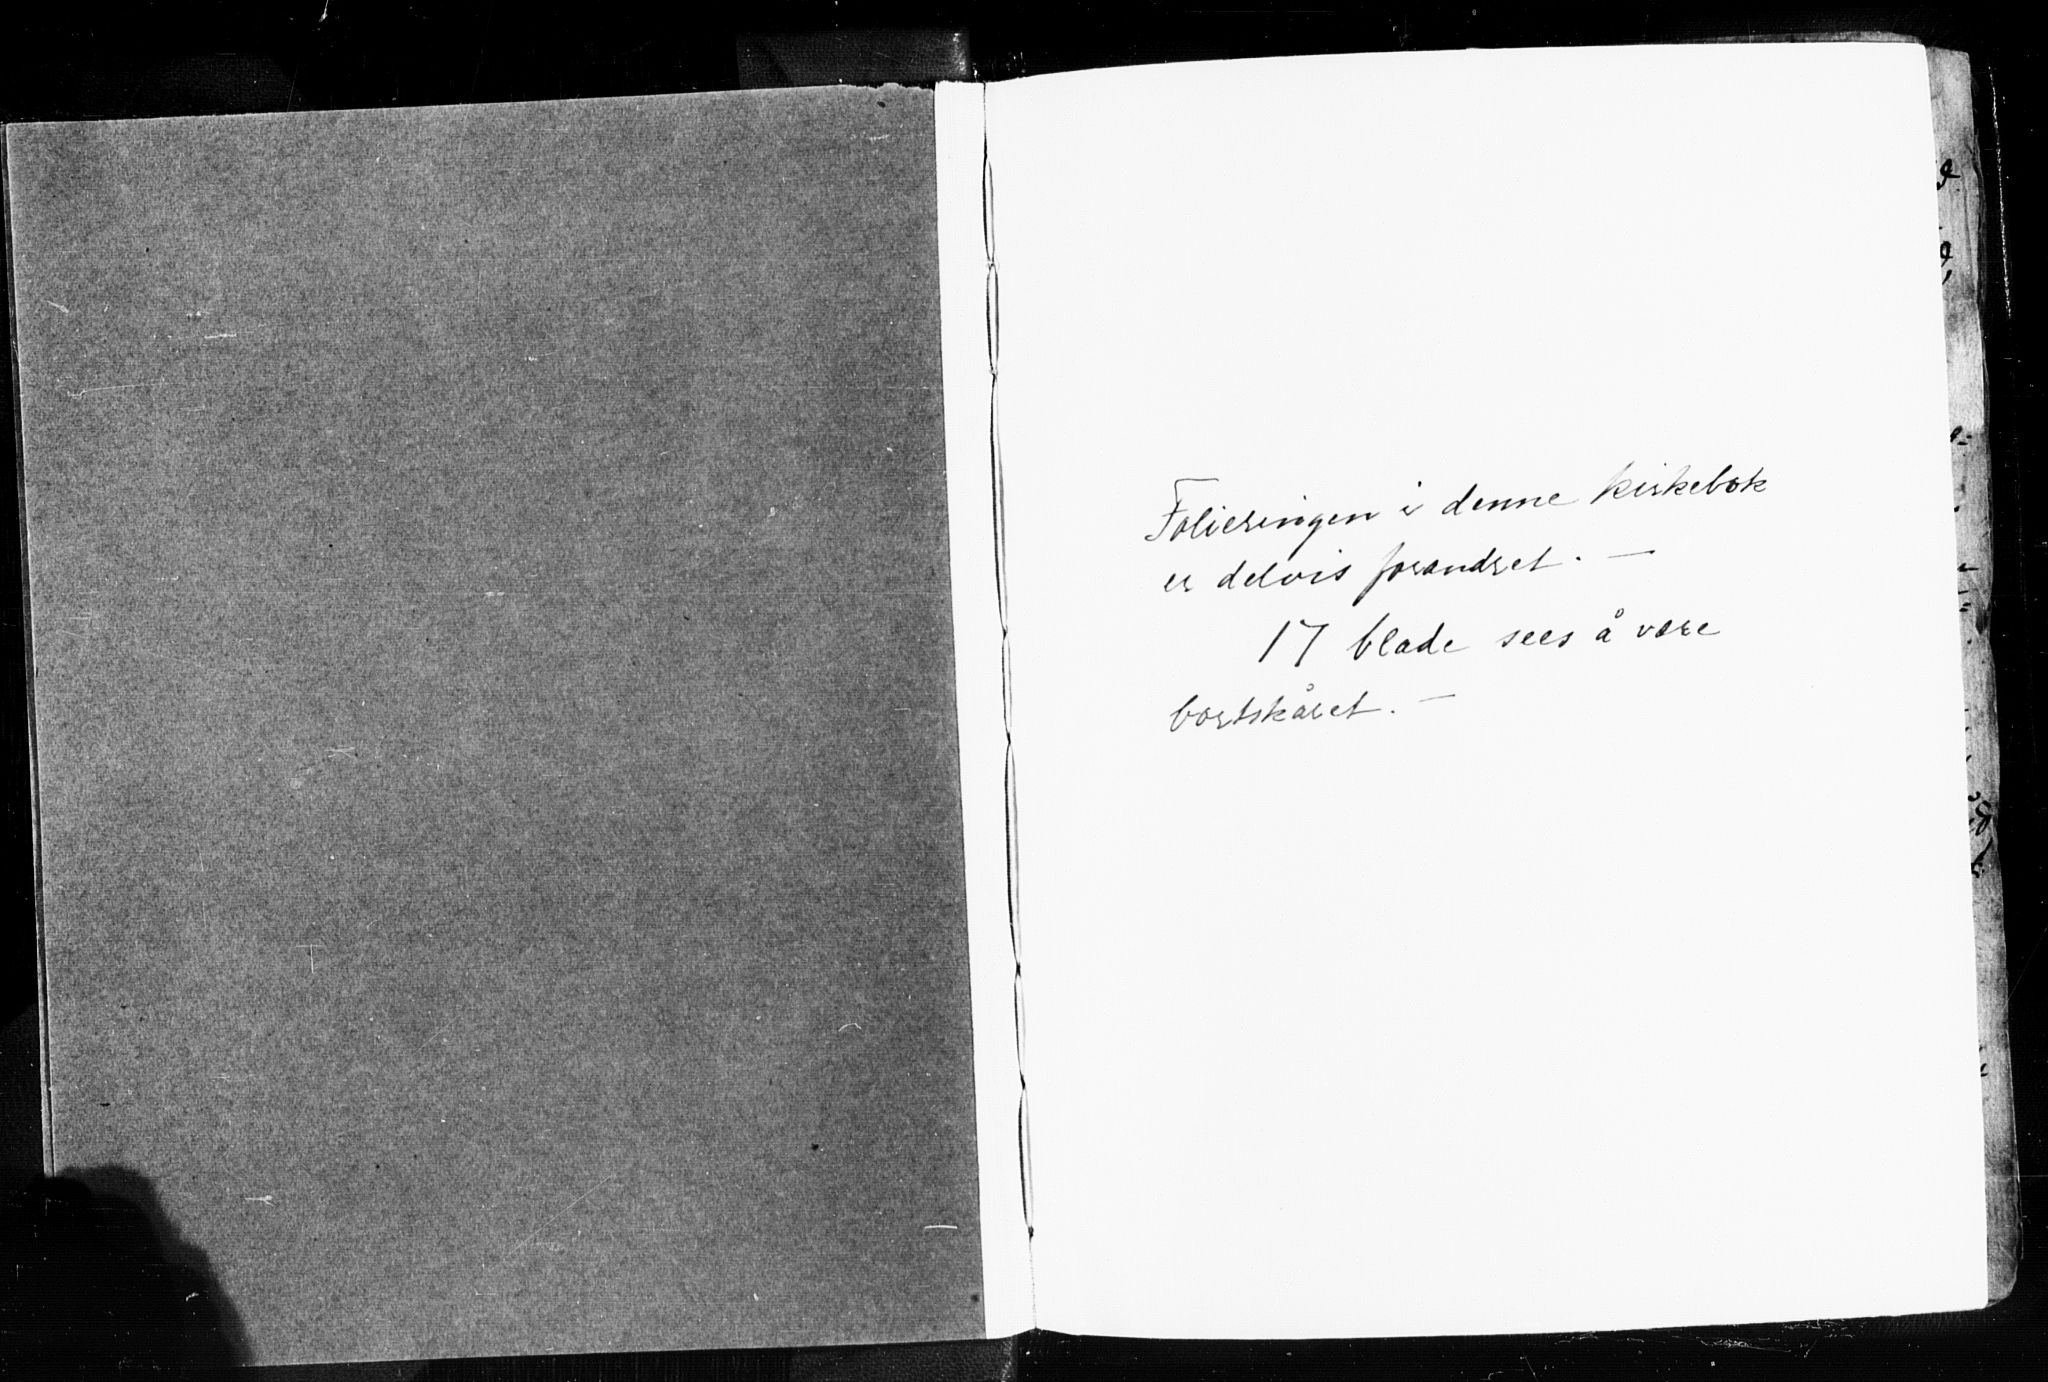 Folieringen i denne kirkebok
er delvis forandret. —
17 blade sees å være
bortskåret. —